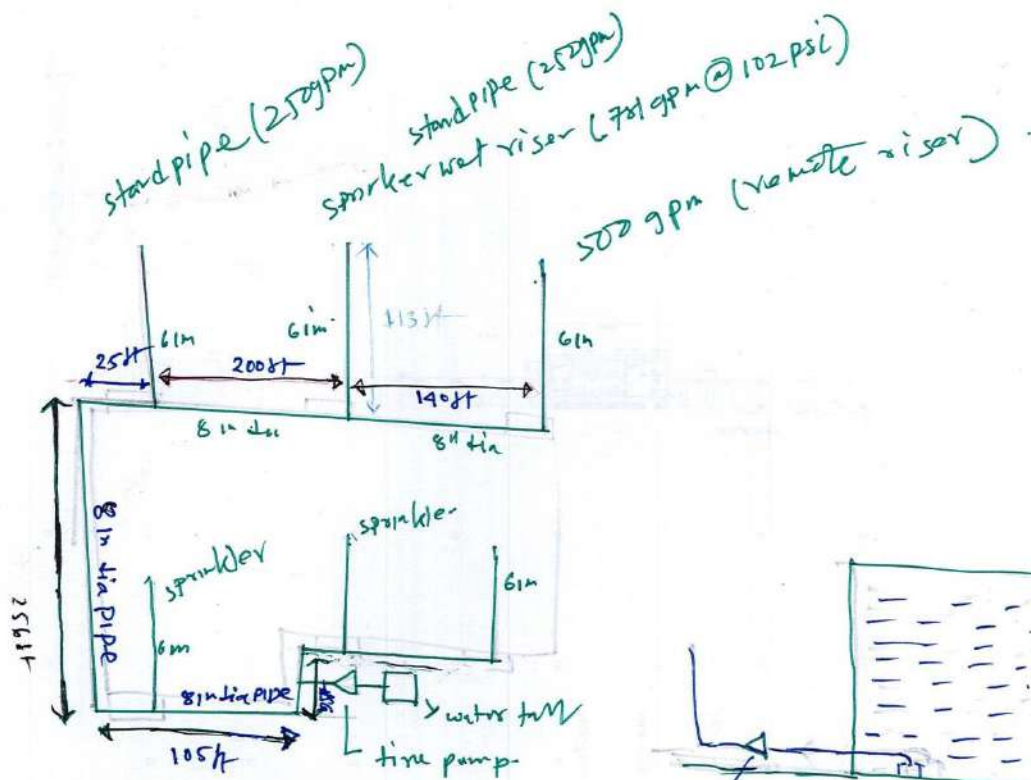 standpipe (250gpm)
standpipe (250gpm)
sprirkerwet riser (781gpm@102psi)
500 gpm (remote riser)
25ft
61m
200ft
61m
113ft
140ft
61n
8 in dia
8" dia
256ft
8 in dia pipe
sprinkler
6m
sprinkler
61n
8 in dia pipe
105ft
water tank
fire pump